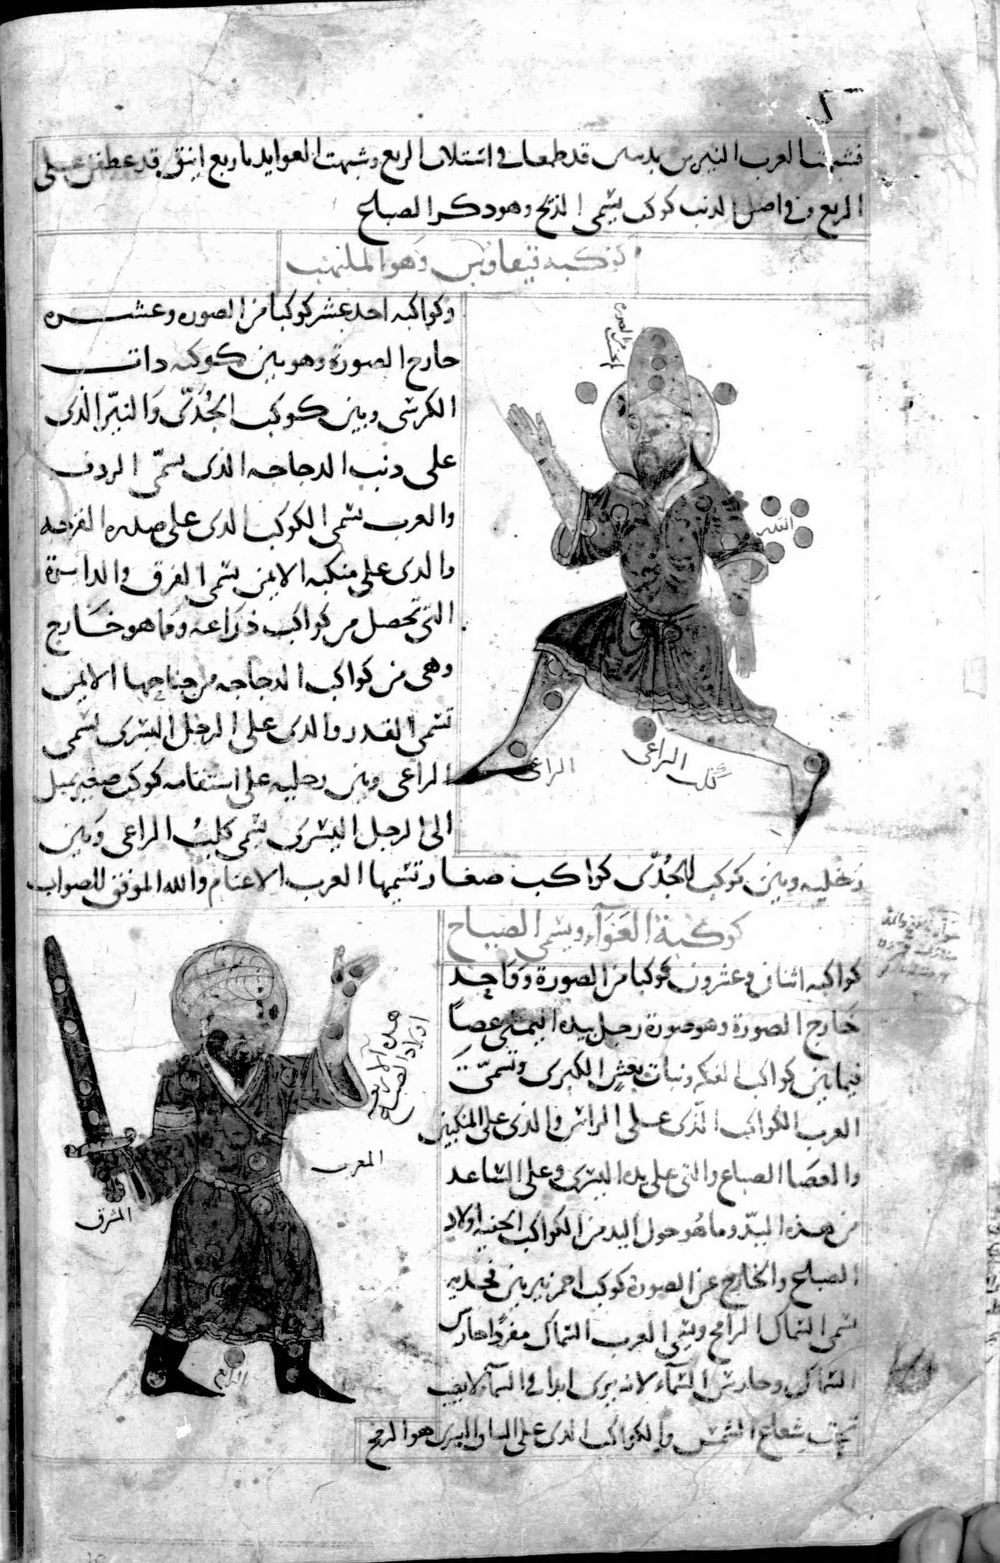 فشبهت العرب النيرين بذئبين قد طمعا في استلاب الربع وشبهت العوايد باربع اينق قد عطفن على
الربع وفي اصل الذنب كوكب يسمى الذيخ وهو ذكر الضباع
كوكبة قيفاوس وهو الملتهب
وكواكبه احد عشر كوكبا من الصورة وعشره
خارج الصورة وهو بين كوكبه ذات
الكرسي وبين كوكب الجدي والنير الذي
على ذنب الدجاجه الذي يسمى الردف
والعرب تسمي الكوكب الذي على صدره القرحه
والذي على منكبه الايمن يسمى الفرق والدائرة
التي تحصل من كواكب ذراعه وما هو خارج
وهي من كواكب الدجاجه من جناحها الايمن
تسمى القدر والذي على الرجل اليسرى يسمى
الراعي وبين رجليه على استقامه كوكب صغير يميل
الى الرجل اليسرى يسمى كلب الراعي وبين
رجليه وبين كوكب الجدي كواكب صغار تسميها العرب الاغنام والله الموفق للصواب
القدر
الراعي
كلب الراعي
كوكبة العواء ويسمى الصياح
كواكبه اثنان وعشرون كوكبا من الصورة وواحد
خارج الصورة وهو صورة رجل بيده اليمنى عصا
فيما بين كواكب الفكه وبنات نعش الكبرى وتسمي
العرب الكواكب الذي على الراس والذي على المنكبين
والعصا الضباع والتي على يده اليسرى وعلى الساعد
من هذه اليد وما هو حول اليد من الكواكب الخفيه اولاد
الضباع والخارج عن الصورة كوكب احمر نير بين فخذيه
يسمى السماك الرامح ويسمي العرب السماك مفردا حارس
السماك وحارس السماء لانه يرى ابدا في السماء لا يغيب
تحت شعاع الشمس والكواكب الذي على الساق اليسرى هو الرمح
هذه الاربعة
اولاد الضباع
المغرب
المشرق
الرامح